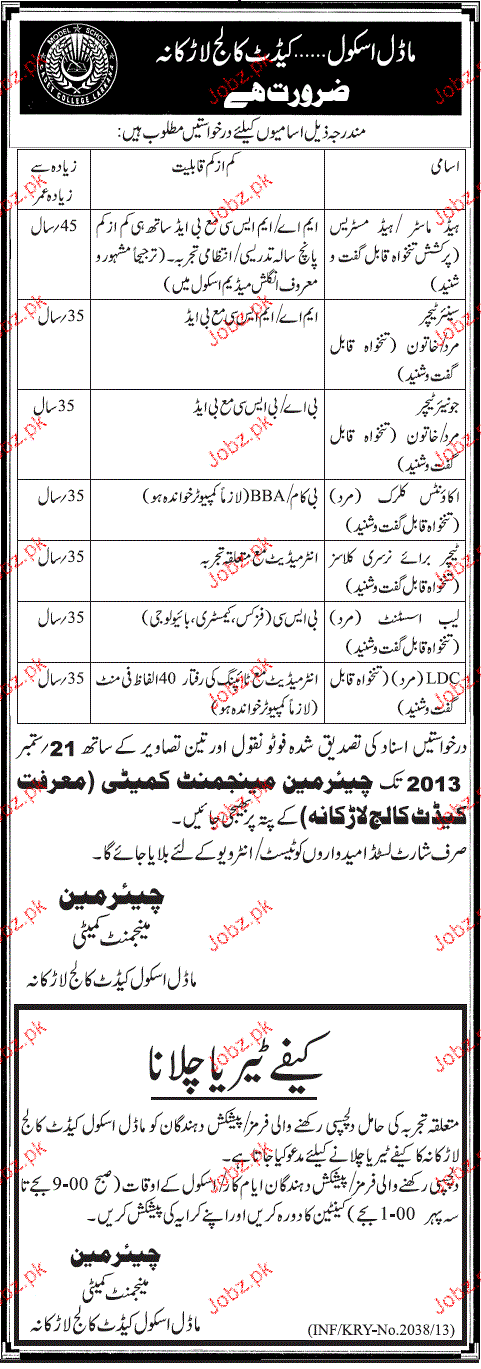 ماڈل اسکول......کیڈٹ کالج لاڑکانہ
MODEL SCHOOL
CADET COLLEGE LARKANA
ضرورت ہے
مندرجہ ذیل اسامیوں کیلئے درخواستیں مطلوب ہیں:
اسامی
کم از کم قابلیت
زیادہ سے
زیادہ عمر
ہیڈ ماسٹر/ہیڈ مسٹریس
(پرکشش تنخواہ قابل گفت و
شنید)
ایم اے/ایم ایس سی مع بی ایڈ ساتھ ہی کم از کم
پانچ سالہ تدریسی/انتظامی تجربہ۔ (ترجیحاً مشہور و
معروف انگلش میڈیم اسکول میں)
45/سال
سینئر ٹیچر
مرد/خاتون (تنخواہ قابل
گفت و شنید)
ایم اے/ایم ایس سی مع بی ایڈ
35/سال
جونیئر ٹیچر
مرد/خاتون (تنخواہ قابل
گفت و شنید)
بی اے/بی ایس سی مع بی ایڈ
35/سال
اکاؤنٹس کلرک (مرد)
(تنخواہ قابل گفت و شنید)
بی کام/BBA (لازماً کمپیوٹر خواندہ ہو)
35/سال
ٹیچر برائے نرسری کلاسز
(تنخواہ قابل گفت و شنید)
انٹرمیڈیٹ مع متعلقہ تجربہ
35/سال
لیب اسسٹنٹ (مرد)
(تنخواہ قابل گفت و شنید)
بی ایس سی (فزکس، کیمسٹری، بائیولوجی)
35/سال
LDC (مرد) (تنخواہ قابل
گفت و شنید)
انٹرمیڈیٹ مع ٹائپنگ کی رفتار 40 الفاظ فی منٹ
(لازماً کمپیوٹر خواندہ ہو)
35/سال
درخواستیں اسناد کی تصدیق شدہ فوٹو نقول اور تین تصاویر کے ساتھ 21/ستمبر
2013 تک چیئرمین مینجمنٹ کمیٹی (معرفت
کیڈٹ کالج لاڑکانہ) کے پتہ پر بھیجی جائیں۔
صرف شارٹ لسٹڈ امیدواروں کو ٹیسٹ/انٹرویو کے لئے بلایا جائے گا۔
چیئرمین
مینجمنٹ کمیٹی
ماڈل اسکول کیڈٹ کالج لاڑکانہ
کیفے ٹیریا چلانا
متعلقہ تجربہ کی حامل دلچسپی رکھنے والی فرمز/پیشکش دہندگان کو ماڈل اسکول کیڈٹ کالج
لاڑکانہ کا کیفے ٹیریا چلانے کیلئے مدعو کیا جاتا ہے۔
دلچسپی رکھنے والی فرمز/پیشکش دہندگان ایام کار/اسکول کے اوقات (صبح 9-00 بجے تا
سہ پہر 1-00 بجے) کینٹین کا دورہ کریں اور اپنے کرایہ کی پیشکش کریں۔
چیئرمین
مینجمنٹ کمیٹی
ماڈل اسکول کیڈٹ کالج لاڑکانہ
(INF/KRY-No.2038/13)
Jobz.pk